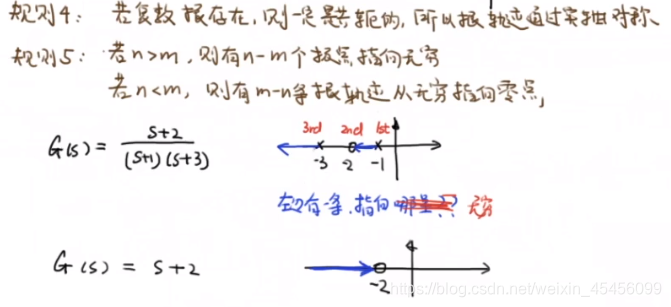 规则4： 若复数根存在，则一定是共轭的，所以根轨迹通过实轴对称、
规则5： 若n>m，则有n-m个极点指向无穷
若n<m，则有m-n条根轨迹从无穷指向零点，
G(s) = \frac{s+2}{(s+1)(s+3)}
3rd 2nd 1st
-3 2 -1
左边有一条，指向 无穷
G(s) = s+2
-2
https://blog.csdn.net/weixin_45456099